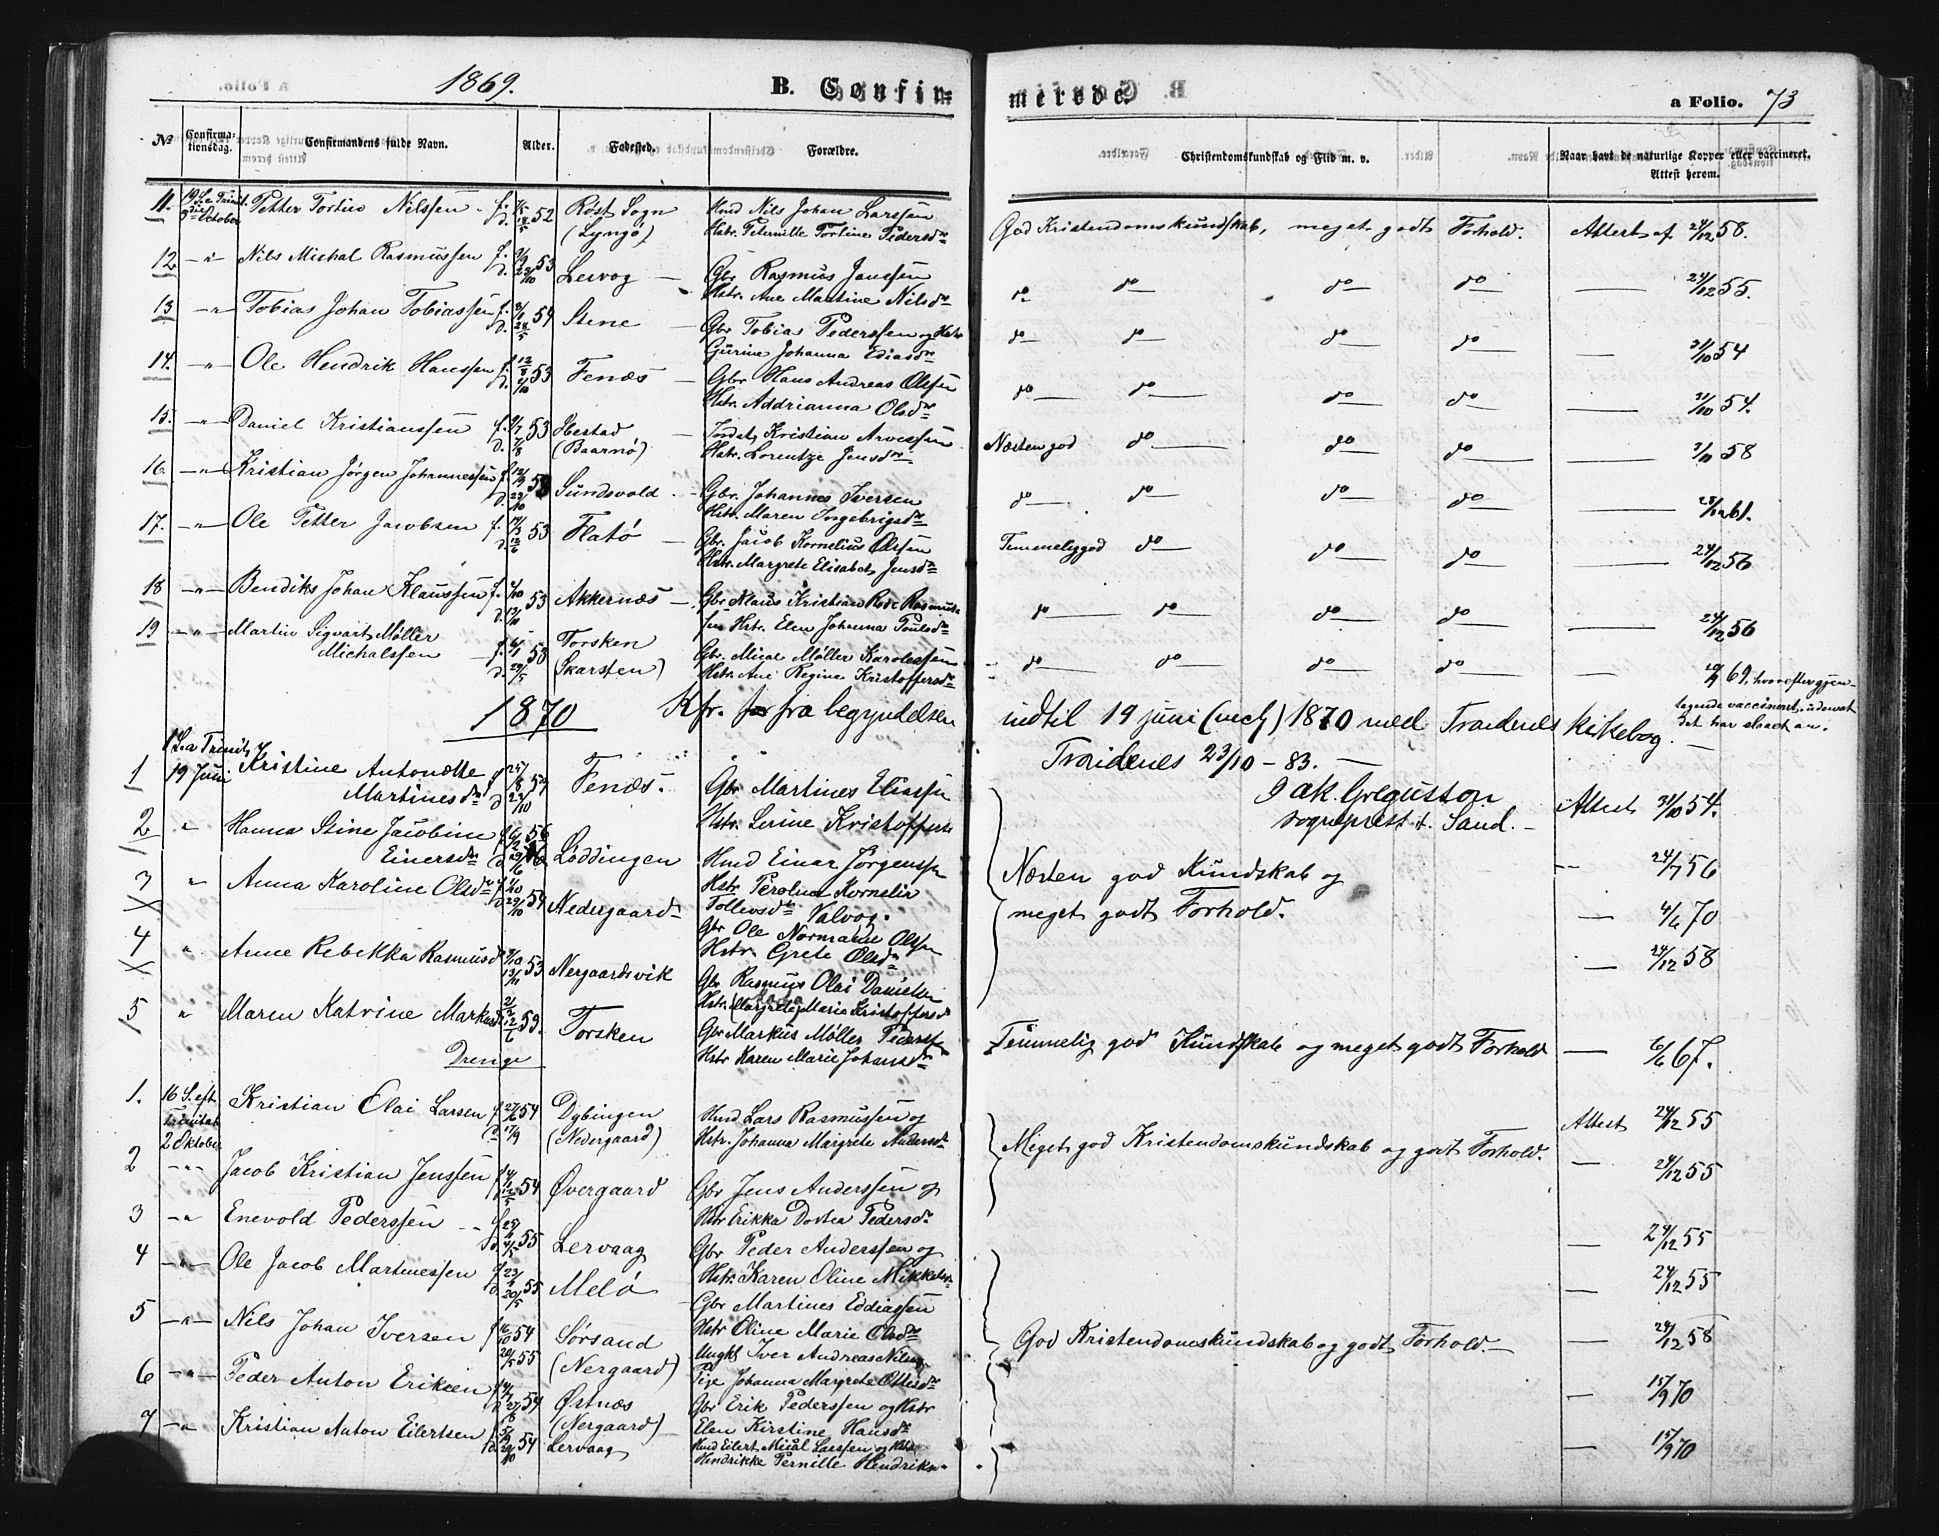 1869. B. Confir=
merede. a Folio. 73
No Confirmationsdag. Confirmandens fulde Navn. Alder. Fødested. Forældre. Christendomskundskab og Flid m. v. Naar havt de naturlige Kopper eller vaccineret. Attest herom.
11. October Petter Nilssen f. 52 Røst Sogn Hmd Nils Johan Larssen
d. (Lyngø) Hstr. Peternille Pedersdr
God Kristendomskundskab, meget godt Forhold. Attest af 24/12 58.
12 -"- Nils Michal Rasmussen f. 53 Lervog Gbr Rasmus Janssen
Hstr. Ane Martine Nilsdr
do do do do 24/12 55.
13 -"- Tobias Johan Tobiassen f. 54 Stene Gbr Tobias Pederssen og Hstr
Gurine Johanna Ediasdr
do do do do 31/10 54
14. -"- Ole Hendrik Hanssen f. 53 Fenæs Gbr Hans Andreas Olssen
Hstr. Addrianna Olsdr
do do do do 31/10 54.
15. -"- Daniel Kristianssen f. 53 Ibestad Kristian Arvessen
(Baarnø) Hstr. Lorentze Jensdr
Næsten god do do do 58
16. -"- Kristian Jørgen Johannessen f. 53 Sundsvold Gbr. Johannes Iversen
Hstr. Maren Ingebrigsdr
do do do do 61.
17. -"- Ole Petter Jacobsen f. 53 Flatø Gbr. Jacob Kornelius Olssen
Hstr. Margrete Elisabet Jensdr
Temmelig god do do do 24/12 56
18 -"- Bendiks Johan Klaussen f. 53 Akkernæs Gbr Klaus Kristian Rasmus
sen Hstr. Elen Johanna Poulsdr
do do do do 24/12 56
19 -"- Martin Sigvart Møller
Michalssen 53 Torsken
(Skarsten) Gbr. Møller Karolessen
Hstr. Ane Regine Kristoffersdr
do do do do 69, hvorefter gjen-
tagende vaccineret, uden at
det har slaaet an.
1870 Kfr. fra begyndelsen indtil 19 juni 1870 med Tranderes kirkebog.
Traidenes 23/10 - 83.
Jak. Gregusson
sogneprest t. Sand.
1 1 S. a Trinit.
19 Juni Kristine Antonætte
Martinesdr 54 Fenæs. Gbr Martines Eliassen
Hstr. Serine Kristoffers
Attest 31/10 54.
2 " Hanna Stine Jacobine
Einersdr 56 Løddingen Hmd Einar Jørgenssen
Hstr. Kornelia
Tollevsdr Valvog.
Næsten god Kundskab og
meget godt Forhold.
24/7 56
3 " Anna Karoline Olsdr 54 Nedergaard Gbr Ole Normann Olssen
Hstr. Grete Olsdr
4/6 70
4 " Anne Rebekka Rasmusd 53 Nergaardsvik Gbr Rasmus Olai Danielsen
Hstr. Margrete Marie Kristoffersd
24/12 58
5 " Maren Katrine Markusd 53. Torsken Gbr Markus Møller Pedersen
Hstr Karen Marie Johansdr
Temmelig god Kundskab og meget godt Forhold 6/6 67.
Drenge
1. 16 S. eft.
Trinitat.
2 Oktober Kristian Olai Larsen f 54 Dybingen
(Nedergaard) Hmd Lars Rasmussen og
Hstr. Johanna Margrete Andersdr
Meget god Kristendomskundskab og godt Forhold. Attest 24/12 55
2 -"- Jacob Kristian Jenssen 54 Øvergaard Gbr Jens Anderssen og
Hstr Erikka Dortea Pedersdr
24/12 55
3 -"- Enevold Pederssen 55 Lervaag Gbr Peder Anderssen og
Hstr. Karen Oline Mikkels
24/12 55
4 -"- Ole Jacob Martinessen 55 Melø Gbr Martines Eddiassen
Hstr Oline Marie Olsdr
24/12 55
5 -"- Nils Johan Iversen 54
55 Sørsand
(Nergaard) Ungkl Iver Andreas Nilsen
Pige Johanna Margrete Ottesdr
God Kristendomskundskab og godt Forhold. 24/12 58
6 -"- Peder Anton Eriksen 54 Østnæs
(Nergaard) Gbr Erik Pederssen og Hstr
Elen Kirstine Hansdr
15/9 70
7 -"- Kristian Anton Eilertsen 54 Lervaag Hmd Eilert Larssen og Hstr
Hendrikke Pernille Hendriks.
15/9 70